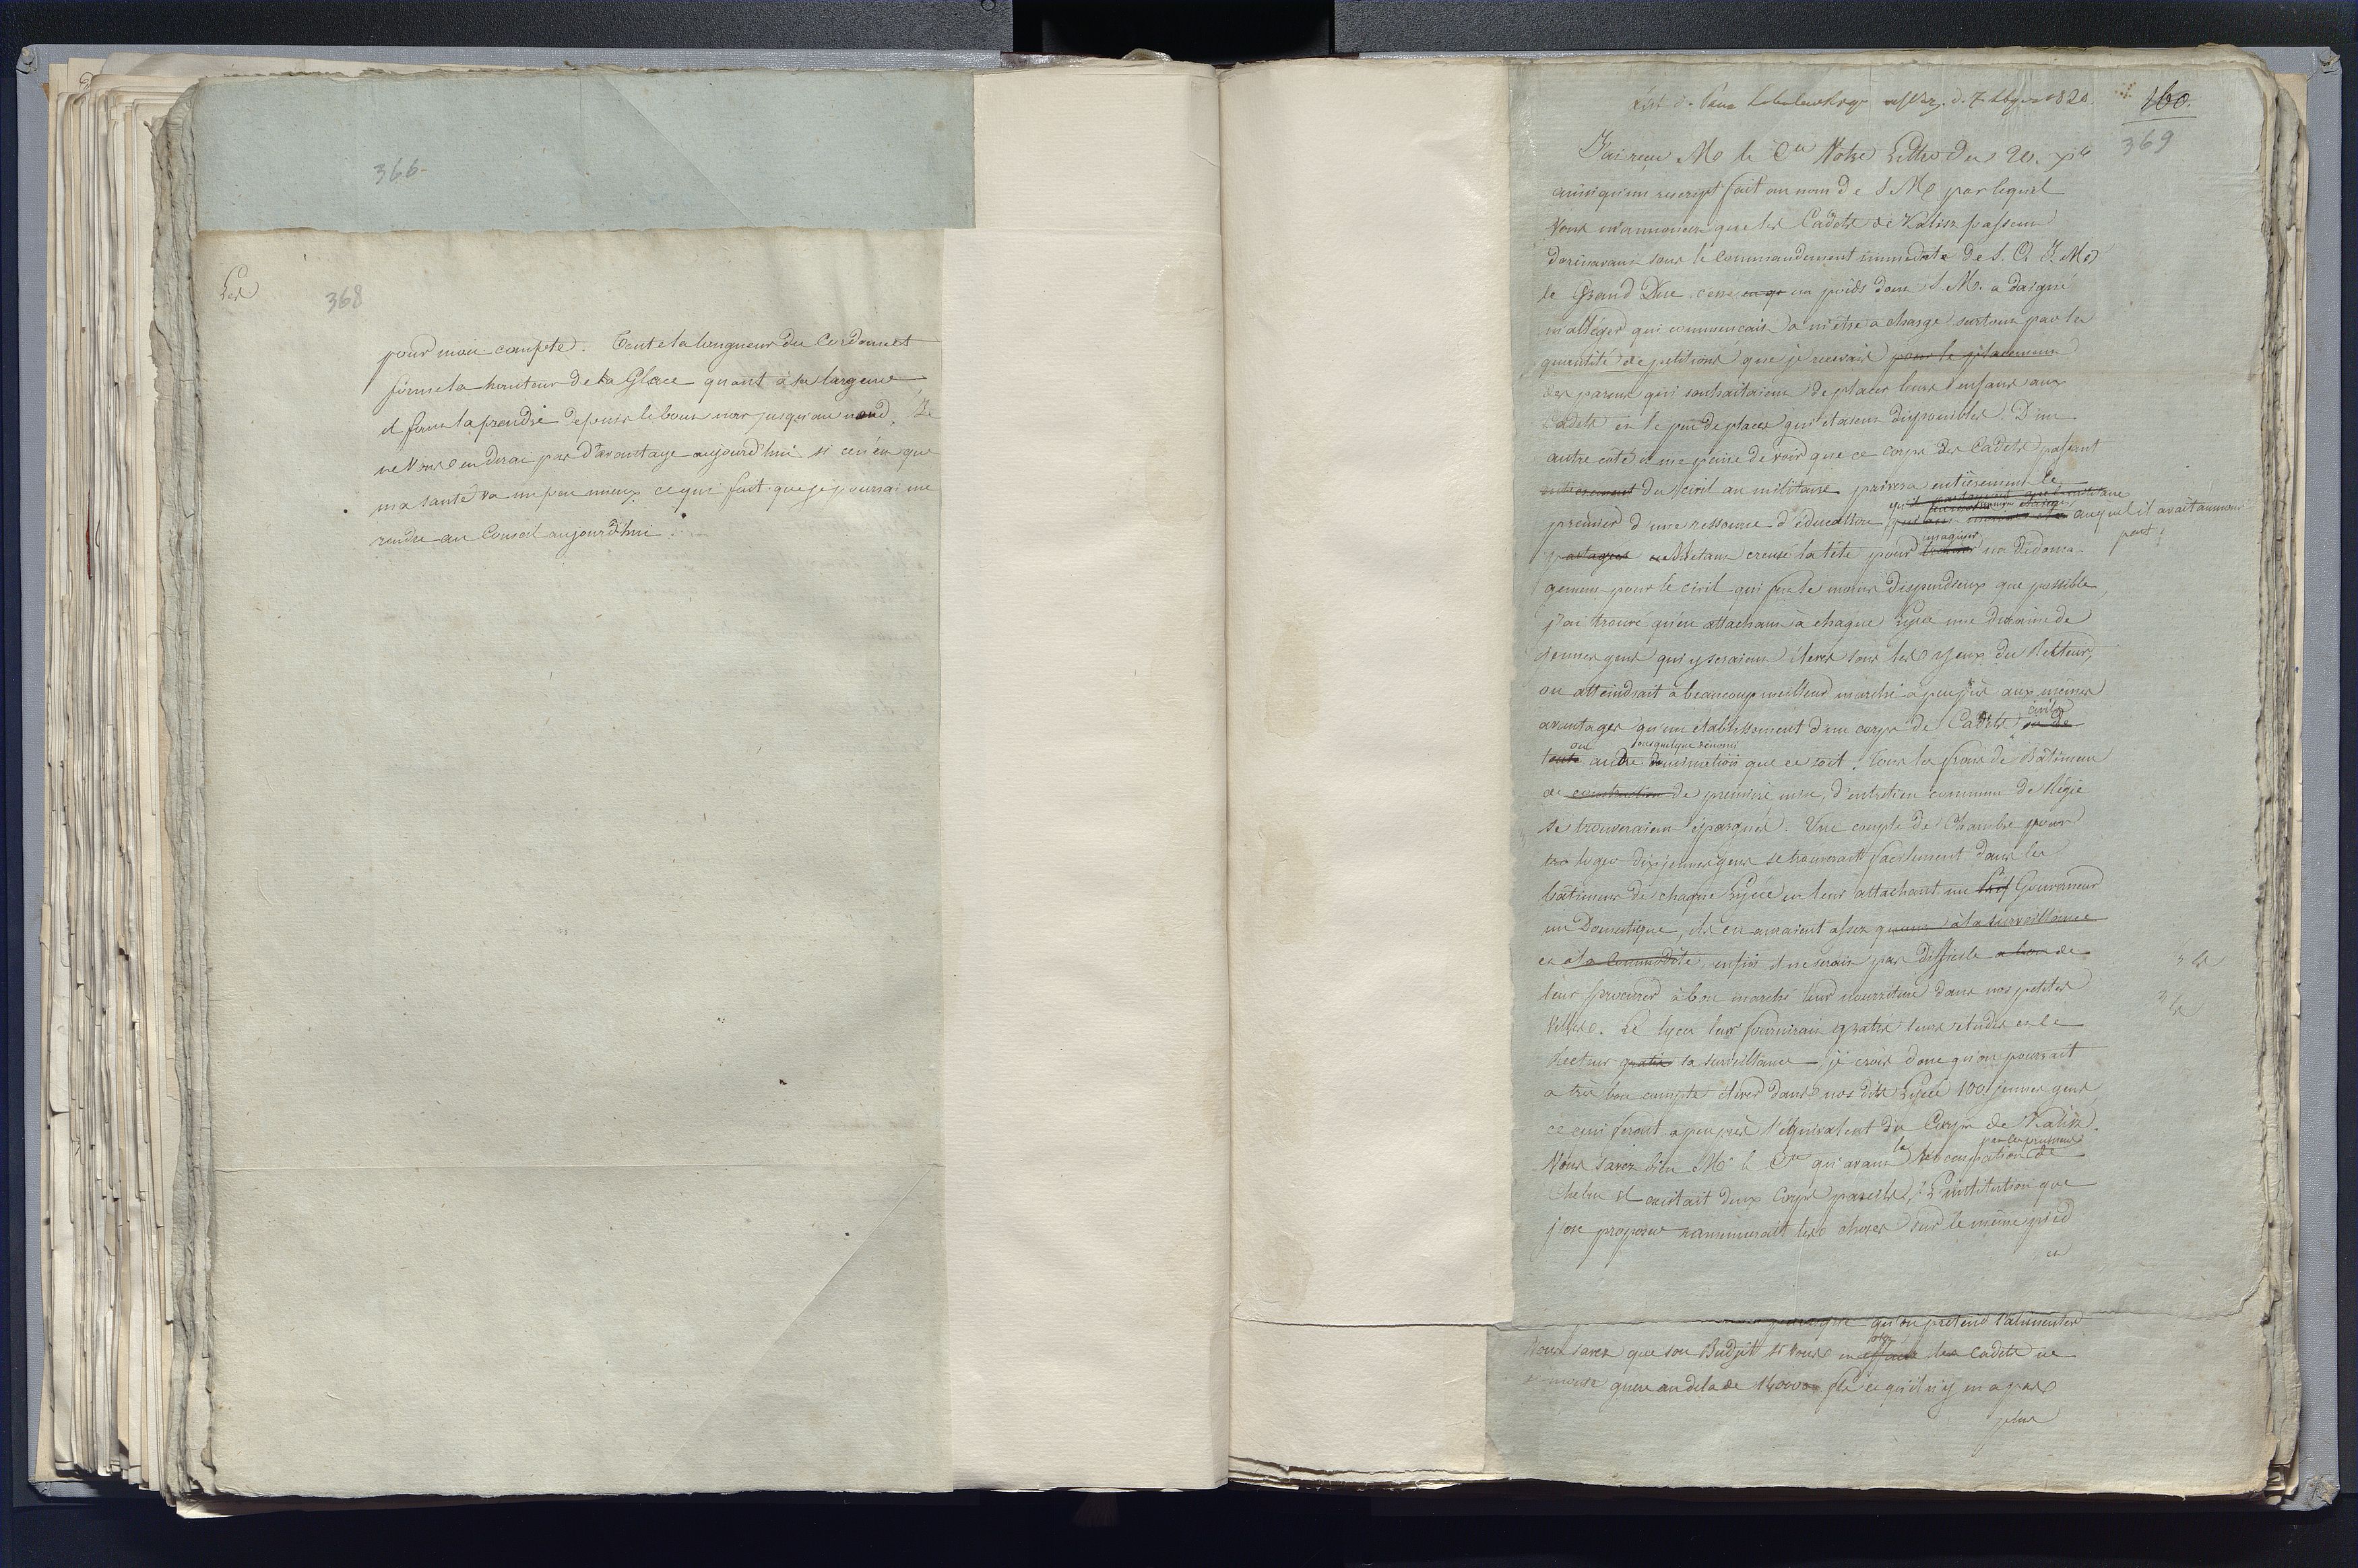 366.
Les
368
pour mon compte. Toute la longueur du Cordonnet
forme la hauteur de la Glace quant à la largeur
il faut la prendre depuis le bout noir jusqu'au nœud. Je
ne Vous en dirai pas d'avantage aujourd'hui si ce n'est que
ma santé va un peu mieux ce qui fait que je pourrai me
rendre au Conseil aujourd'hui.
1820.
160.
369
J'ai reçu Mr le Cte Votre Lettre du 20. Xbre
ainsi qu'un rescript fait au nom de S. M. par lequel
Vous m'annoncez que les Cadets de Kalisz passent
dorénavant sous le Commandement immédiat de S. A. I. Mgr
le Grand Duc. c'est un poids dont S. M. a daigné
m'alléger qui commencait à m'être à charge surtout par la
quantité de petitions que je recevais pour le placement
des parens qui souhaitaient de placer leurs enfans aux
Cadets et le peu de places qui étaient disponibles. D'un
autre côté il me peine de voir que ce corps des Cadets passant
entièrement du civil au militaire privera entièrement le
premier d'une ressource d'éducation auquel il avait au moins
part.
partager Me étant creusé la tête pour imaginer un dédoma-
gement pour le civil qui fut le moins dispendieux que possible,
j'ai trouvé qu'en attachant à chaque Lycée une dixaine de
jeunes gens qui y seraient élevés sous les yeux du Recteur,
on atteindrait à beaucoup meilleur marché à peu près aux mêmes
civils
avantages qu'un établissement d'un corps de Cadets ou de
ou
toute autre dénomination que ce soit. Tous les frais de Bâtimens
de construction de première mise, d'entretien commun de Régie
se trouveraient épargnés. Une couple de Chambre pour
loger dix jeunes gens se trouverait facilement dans les
bâtimens de chaque Lycée en leur attachant un Gouverneur
un Domestique, ils en auraient assez quant à la surveillance
et à la commodité, enfin il ne serait pas difficile a bon de
leur procurer à bon marché leur nourriture dans nos petites
Villes. Le lycée leur fournirait gratis leurs études et le
Recteur gratis la surveillance je crois donc qu'on pourrait
a très bon compte élever dans nos dits Lycée 100 jeunes gens
ce qui ferait à peu près l'équivalent du Corps de Kalisz.
par les prussiens
Vous savez bien Mr le Cte qu'avant l'occupation de
Chelm il existait deux Corps pareils, L'institution que
j'ose proposer ramenerait les choses sur le même pied
et
qu'on pretend l'alimenter
Vous savez que son Budjet si Vous en les Cadets ne
se monte guere au dela de 140000 fls et qu'il n'y en a pas
plus